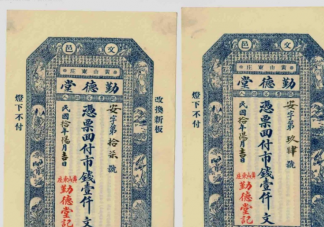 文邑
勤德堂
改換新板
安字第拾貳號
憑票四付市錢壹仟文
民國拾年陽月吉日
勤德堂記
燈下不付
文邑
勤德堂
安字第玖肆號
憑票四付市錢壹仟文
民國拾年陽月吉日
勤德堂記
燈下不付